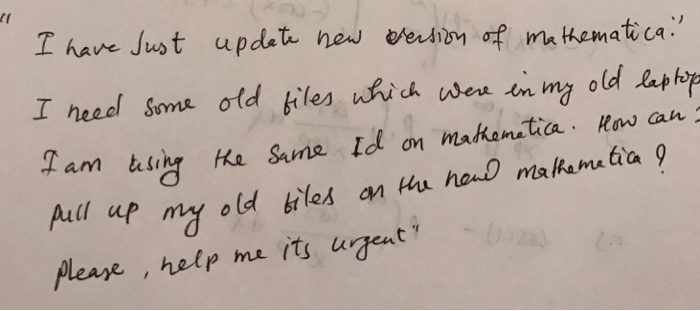 "I have Just update new version of mathematica."
I need some old files which were in my old laptop
I am using the same Id on mathematica. How can I
pull up my old files on the new mathematica?
please, help me its urgent"